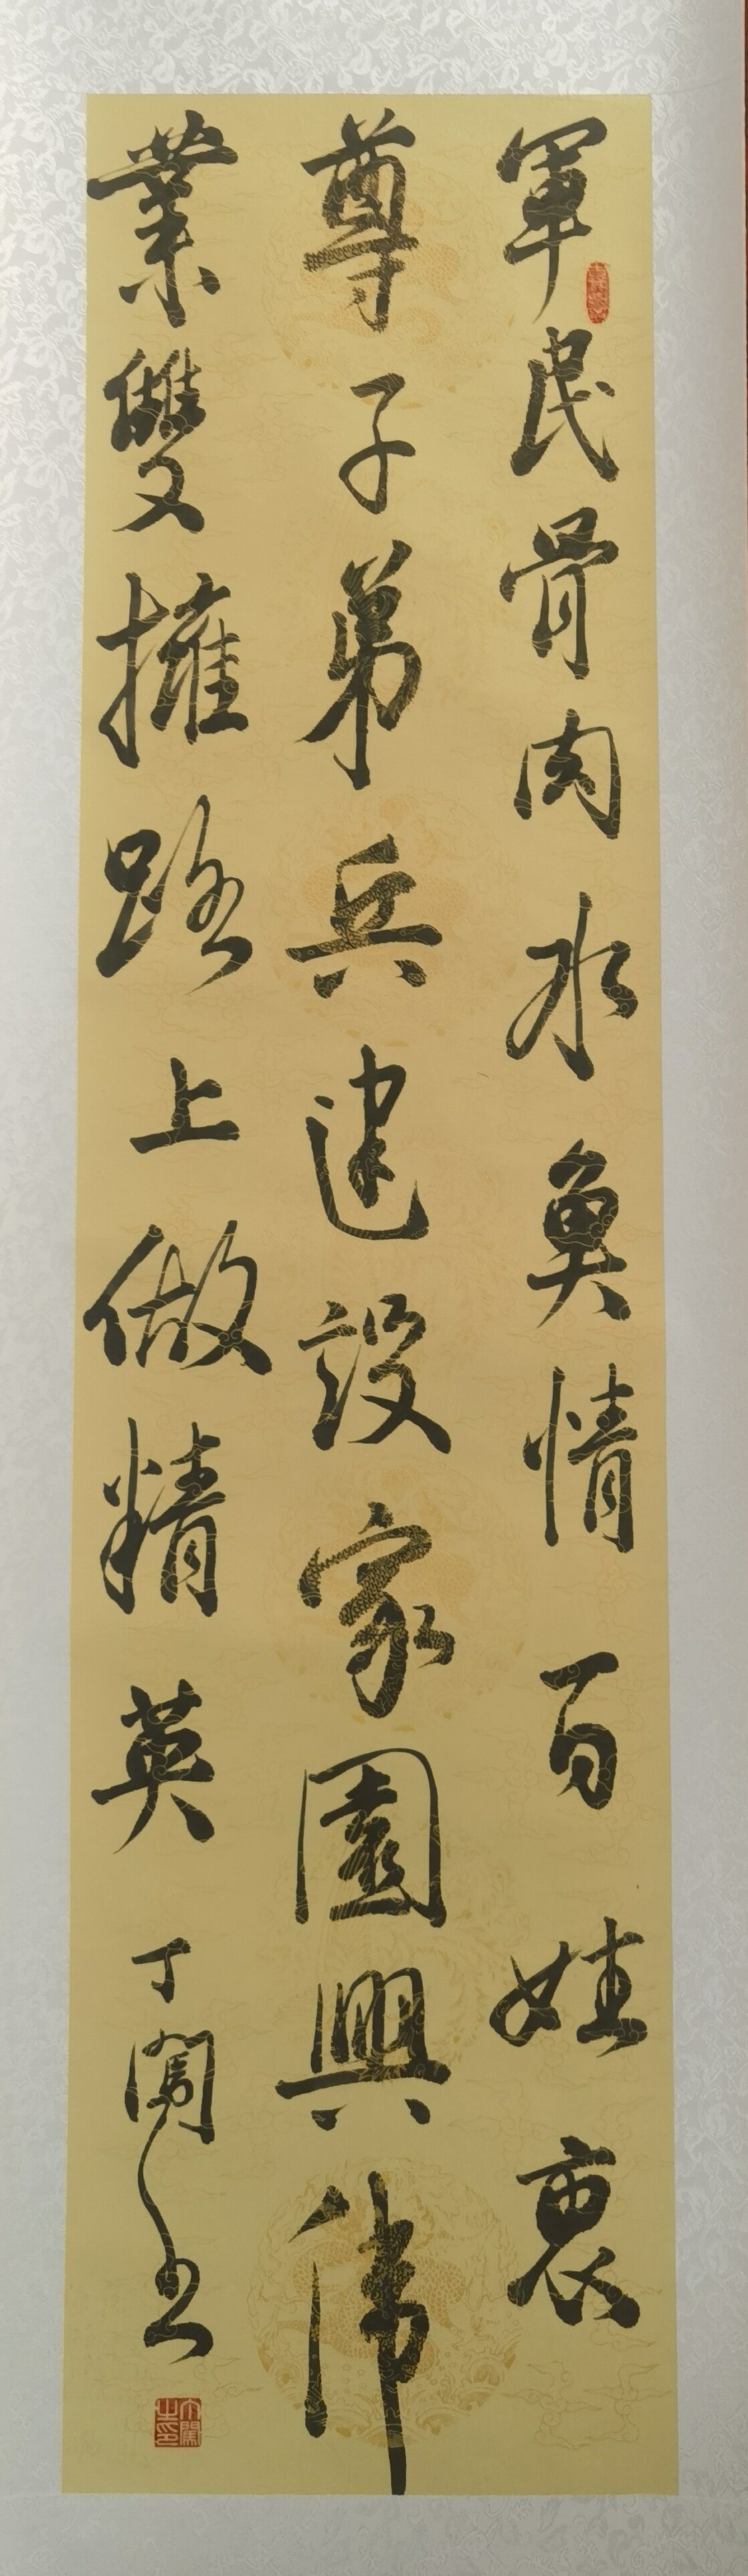 軍民骨肉水魚情百姓衷
尊子弟兵建設家園興偉
業雙擁路上做精英
丁闖书